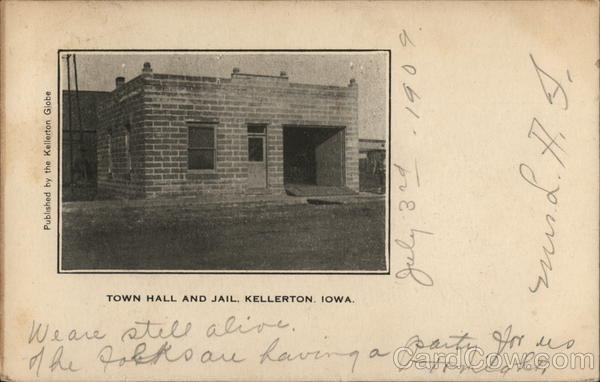 Published by the Kellerton Globe
TOWN HALL AND JAIL, KELLERTON, IOWA.
July 3rd - 1909.
Mrs L. H. F.
We are still alive.
The folks are having a party for us
CardCow.com